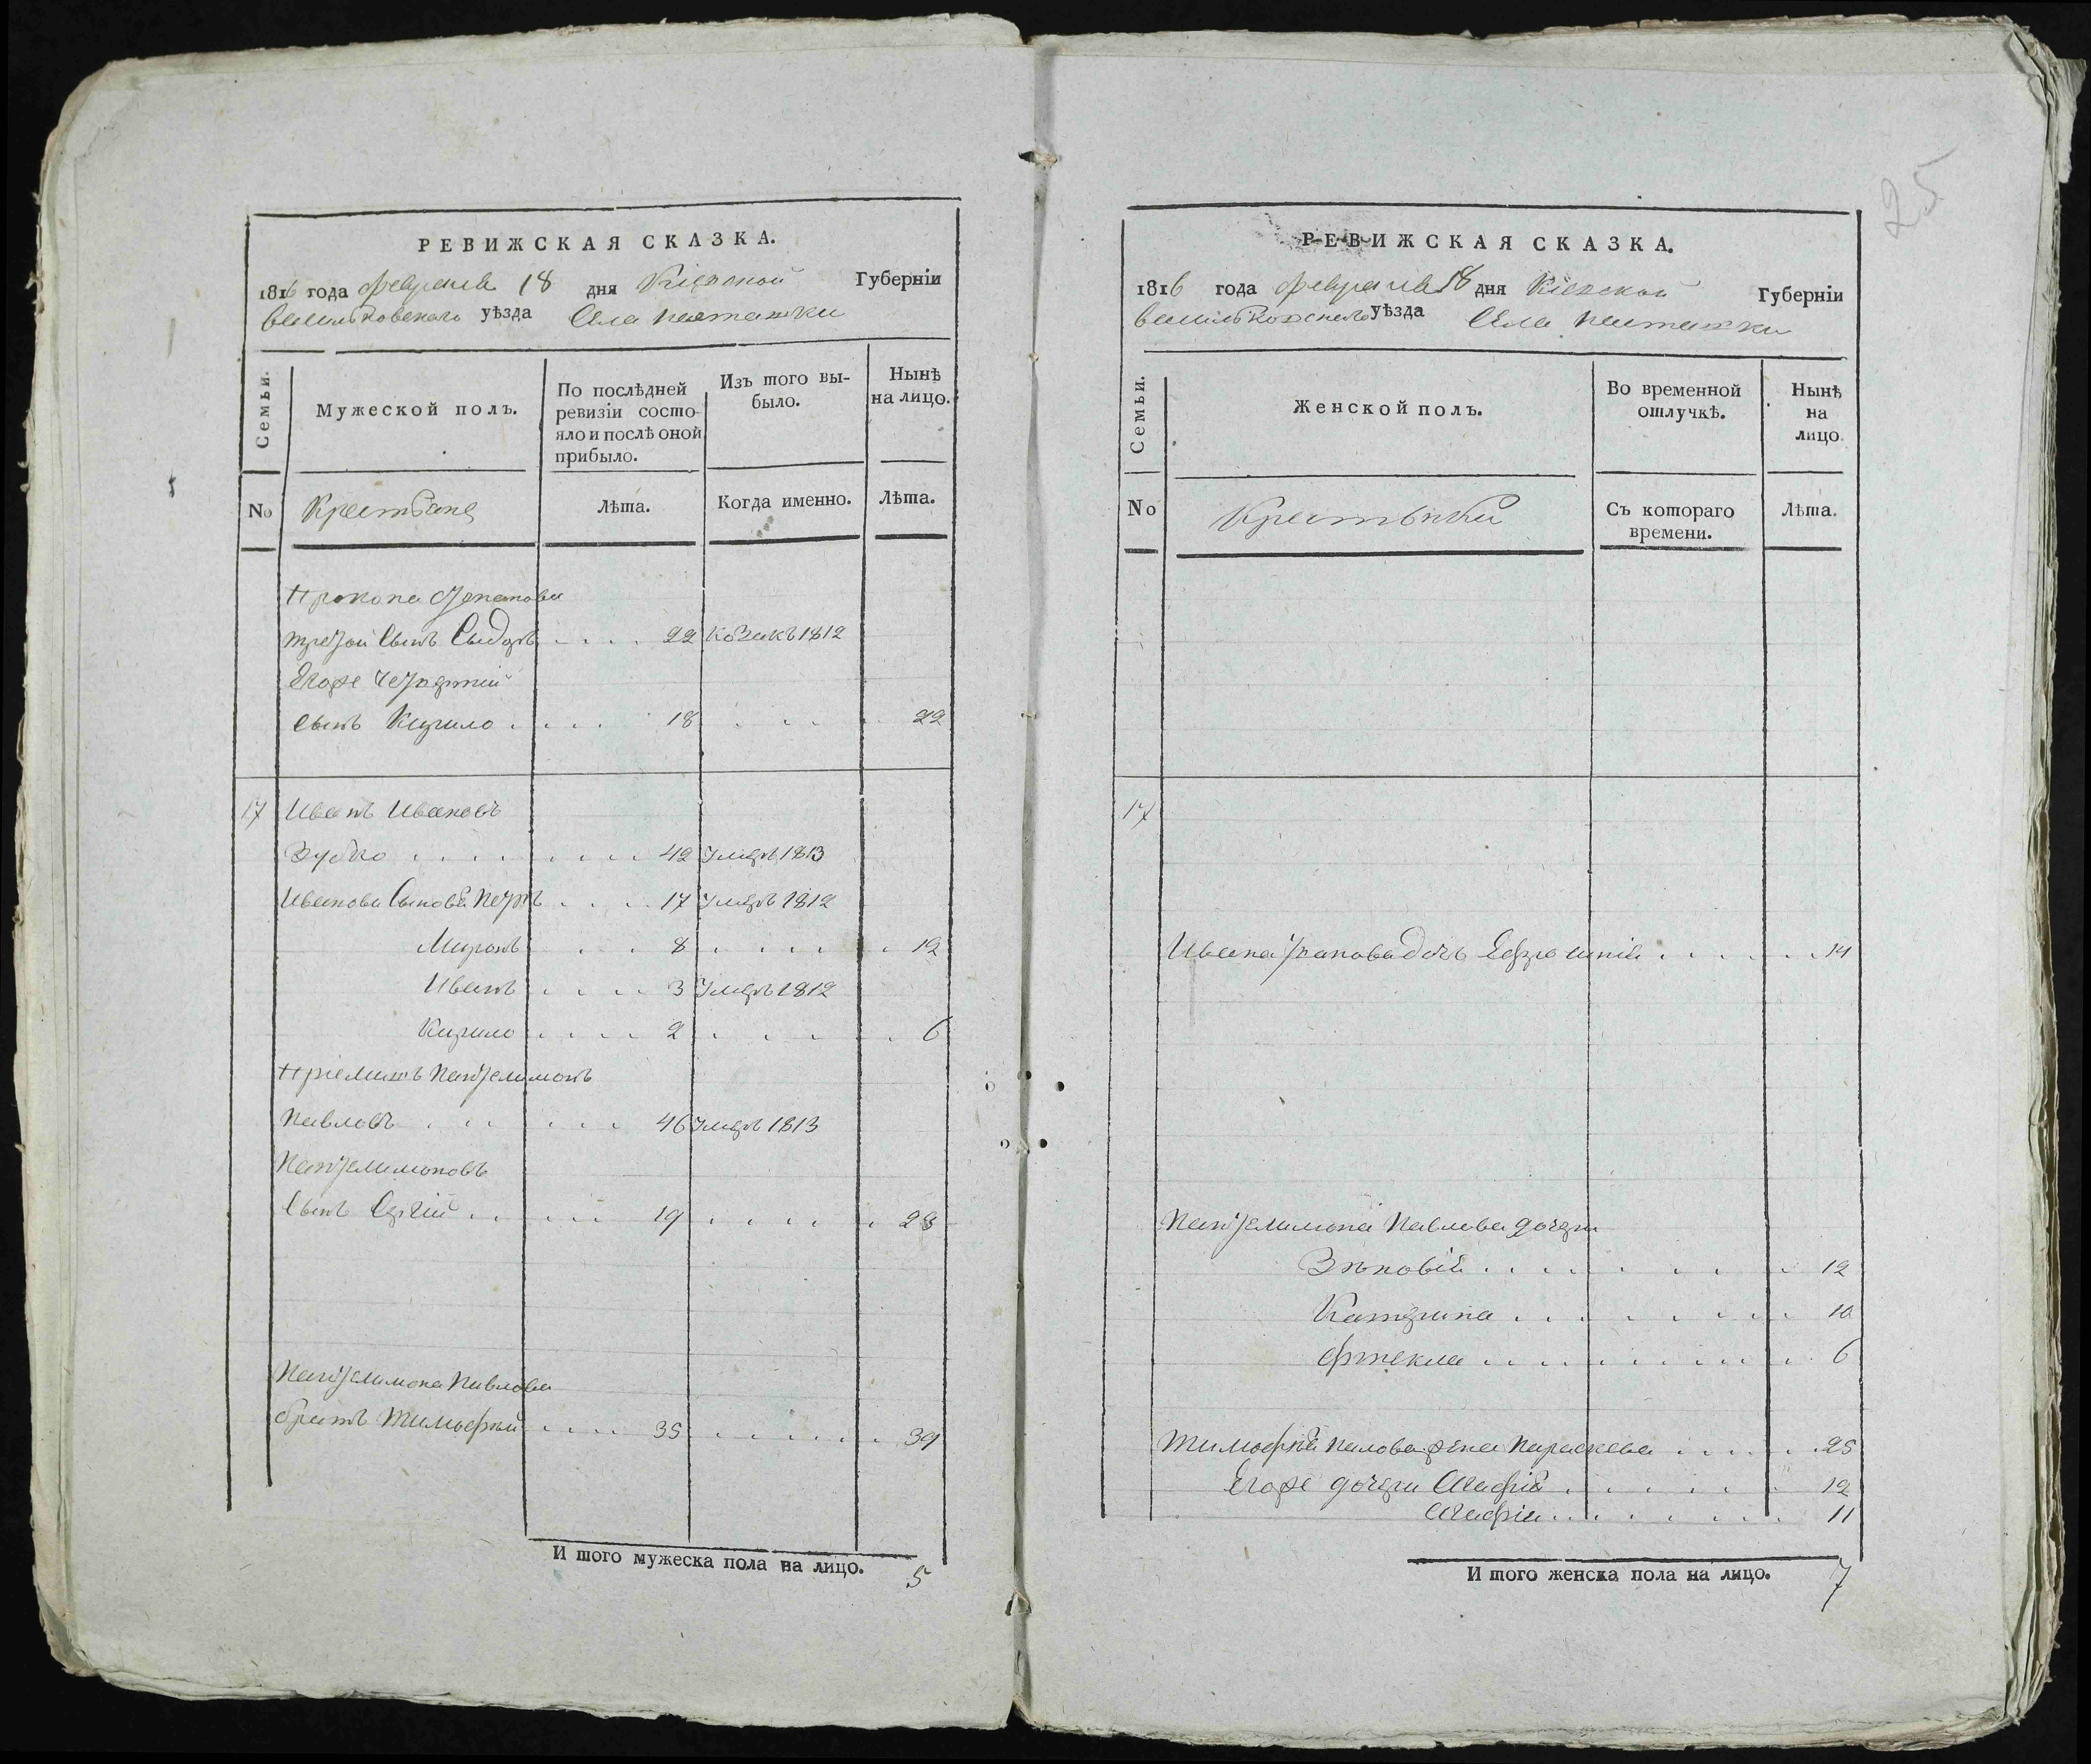 РЕВИЖСКАЯ СКАЗКА.
1816 года Февраля 18 дня Кіевской Губерніи
Васильковскаго уѣзда Села Пяташки
Семьи.
Мужеской полъ.
По послѣдней ревизіи состояло и послѣ оной прибыло.
Изъ того выбыло.
Нынѣ на лицо.
No Крестьяне Лѣта. Когда именно. Лѣта.
Прокопа
третой сынъ Сыдоръ 22 козакъ 1812
Егоже четвертий
сынъ Кирило 18 22
17 Иванъ Ивановъ
Зубко 42 Умеръ 1813
Иванова Сыновья Петръ 17 Умеръ 1812
Миронъ 8 12
Иванъ 3 Умеръ 1812
Кирило 2 6
Пріемишъ Пантелимонъ
Павловъ 46 Умеръ 1813
Пантелимоновъ
Сынъ Сергій 19 23
Пантелимона Павлова
братъ Тимофей 35 39
И того мужеска пола на лицо. 5
25
РЕВИЖСКАЯ СКАЗКА.
1816 года Февраля 18 дня Кіевской Губерніи
Васильковскаго уѣзда Села Пяташки
Семьи.
Женской полъ.
Во временной отлучкѣ.
Нынѣ на лицо.
No Крестьянки Съ котораго времени. Лѣта.
17
Ивана Иванова дочь Ефросинія 14
Пантелимона Павлова дочери
Зѣновія 12
Катерина 10
Фтекла 6
Тимофея Павлова жена Параскева 25
Егоже дочери Агафія 12
Агафія 11
И того женска пола на лицо. 7